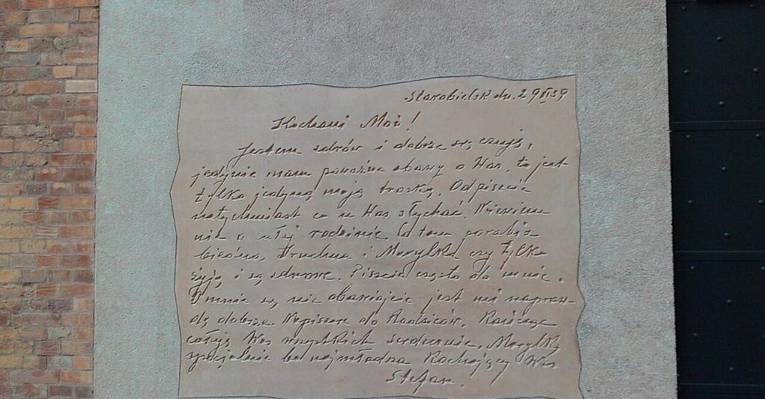 Starobielsk dn. 29 XI 39
Kochani Moi!
Jestem zdrów i dobrze się czuję,
jedynie mam poważne obawy o Was, to jest
tylko jedyną moją troską. Odpiszcie
natychmiast co u Was słychać. Nie wiem
nic o całej rodzinie co tam porabia
biedna, Trudna i Marylka czy tylko
żyją i są zdrowe. Piszcie często do mnie.
O mnie się nic obawiajcie jest mi napraw-
dę dobrze. Napiszcie do Rodziców. Kończąc
całuję Was wszystkich serdecznie, Marylkę
specjalnie bo najmłodsza Kochający Was
Stefan.